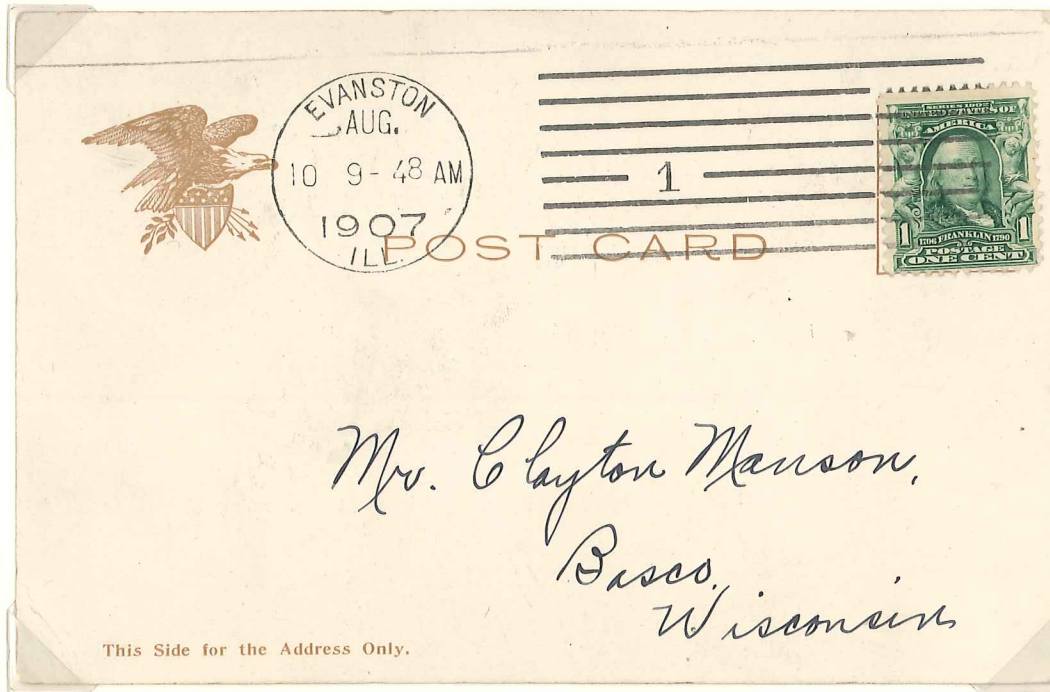 EVANSTON
AUG.
10 9-48 AM
1907
ILL.
1
SERIES 1902
UNITED STATES OF
AMERICA
1 1
1706 FRANKLIN 1790
POSTAGE
ONE CENT
POST CARD
Mr. Clayton Manson,
Basco,
Wisconsin
This Side for the Address Only.